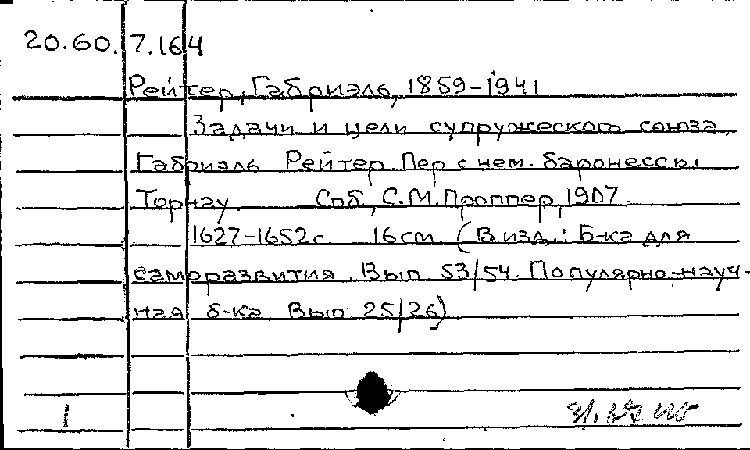 20.60.7.164
Рейтер, Габриэль, 1859-1941
Задачи и цели супружеского союза.
Габриэль Рейтер. Пер с нем. баронессы
Торнау Спб, С.М.Проппер, 1907
1627-1652с. 16см (В изд.: Б-ка для
саморазвития. Вып 53/54. Популярно-науч-
ная б-ка Вып 25/26)
1